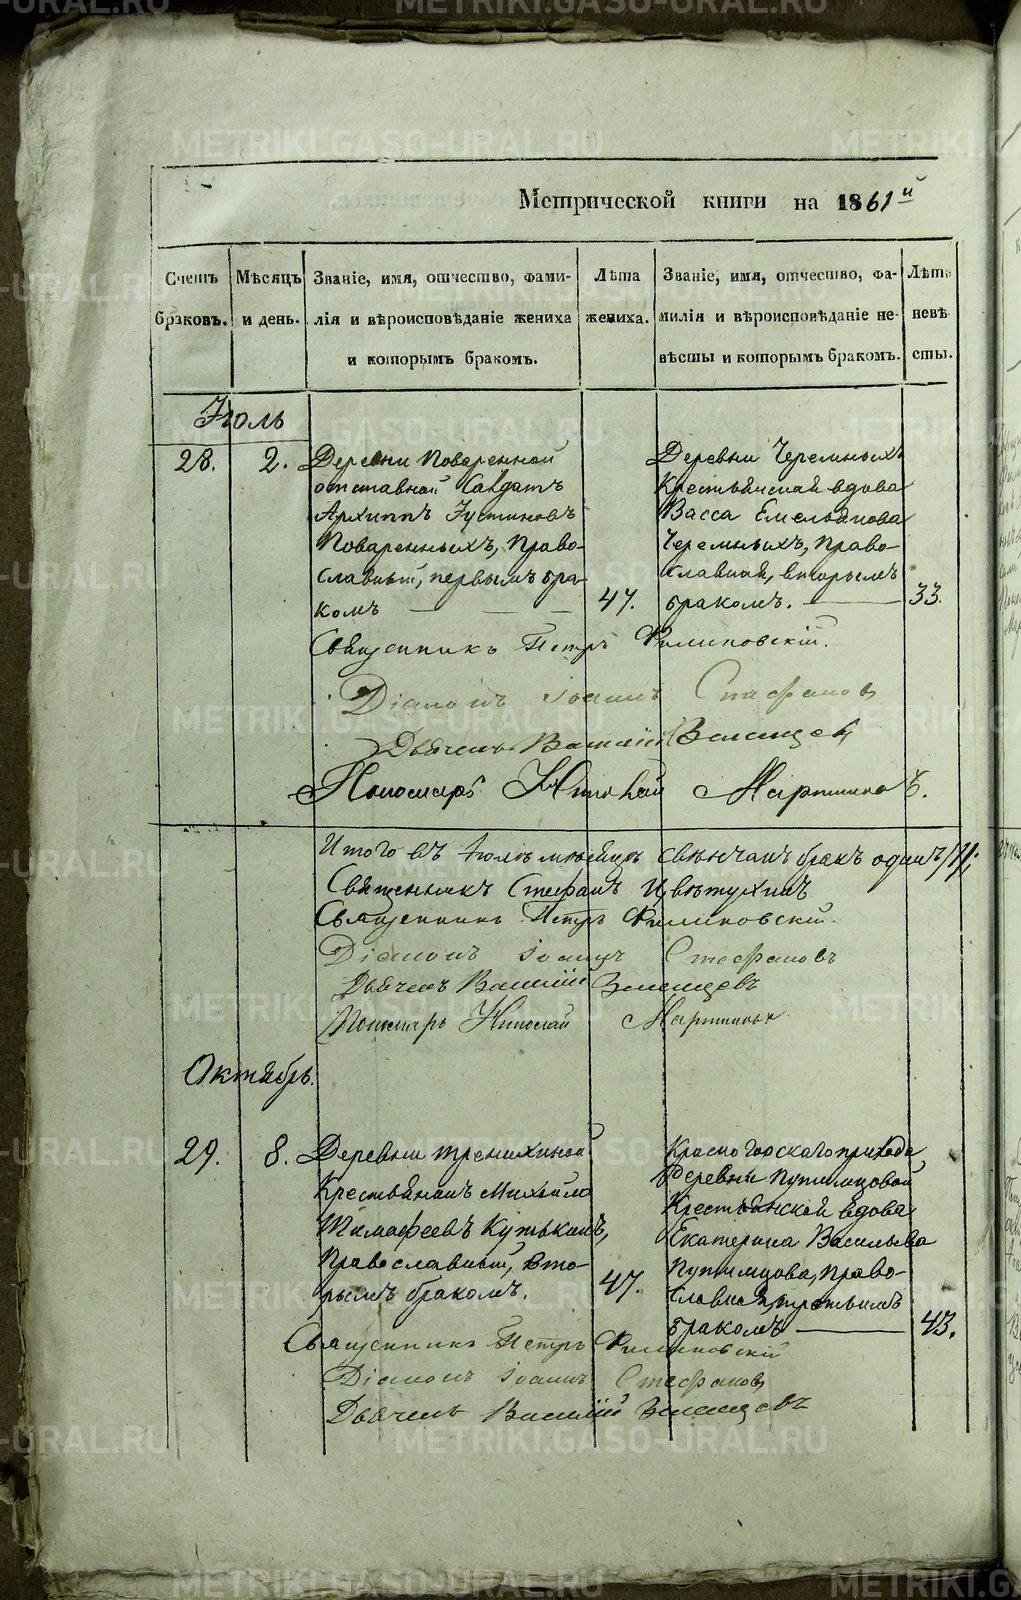 METRIKI.GASO-URAL.RU
Метрической книги на 1861й
Счетъ браковъ.
Мѣсяцъ и день.
Званіе, имя, отчество, фами-
лія и вѣроисповѣданіе жениха
и которымъ бракомъ.
Лѣта жениха.
Званіе, имя, отчество, фа-
милія и вѣроисповѣданіе не-
вѣсты и которымъ бракомъ.
Лѣта невѣ
сты.
Іюль
28. 2.
Деревни Поваренной
отставной Салдатъ
Архиппъ Іустиновъ
Поваренныхъ, право-
славный, первымъ бра-
комъ 47.
Деревни Черемныхъ
Крестьянская вдова
Васса Емельянова
Черемныхъ, право-
славная, вторымъ
бракомъ. 33.
Священникъ Петръ Филиповскій.
Діаконъ Іоаннъ Стефановъ
Дьячекъ Василій Зеленцовъ
Пономарь Николай Мартиновъ.
Итого въ Іюлѣ мѣсяцѣ свѣнчанъ бракъ одинъ /1/;
Священникъ Стефанъ Цвѣтухинъ
Священникъ Петръ Филиповскій.
Діаконъ Іоаннъ Стефановъ
Дьячекъ Василій Зеленцовъ
Пономарь Николай Мартиновъ
Октябрь.
29. 8.
Деревни Трошихиной
Крестьянинъ Михайло
Тимофеевъ Кутькинъ,
Православный, вто-
рымъ бракомъ. 47.
Красногорскаго прихода
Деревни Путимцовой
Крестьянской вдова
Екатерина Васильева
Путимцова, право-
славная, третьимъ
бракомъ 43.
Священникъ Петръ Филиповскій
Діаконъ Іоаннъ Стефановъ
Дьячекъ Василій Зеленцовъ